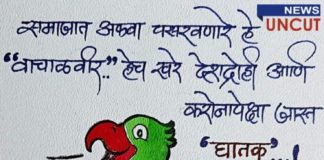 NEWS
UNCUT
समाजात अफवा पसरवणारे हे
"वाचाळवीर.." हेच खरे देशद्रोही आणि
करोनापेक्षा जास्त
"घातक"